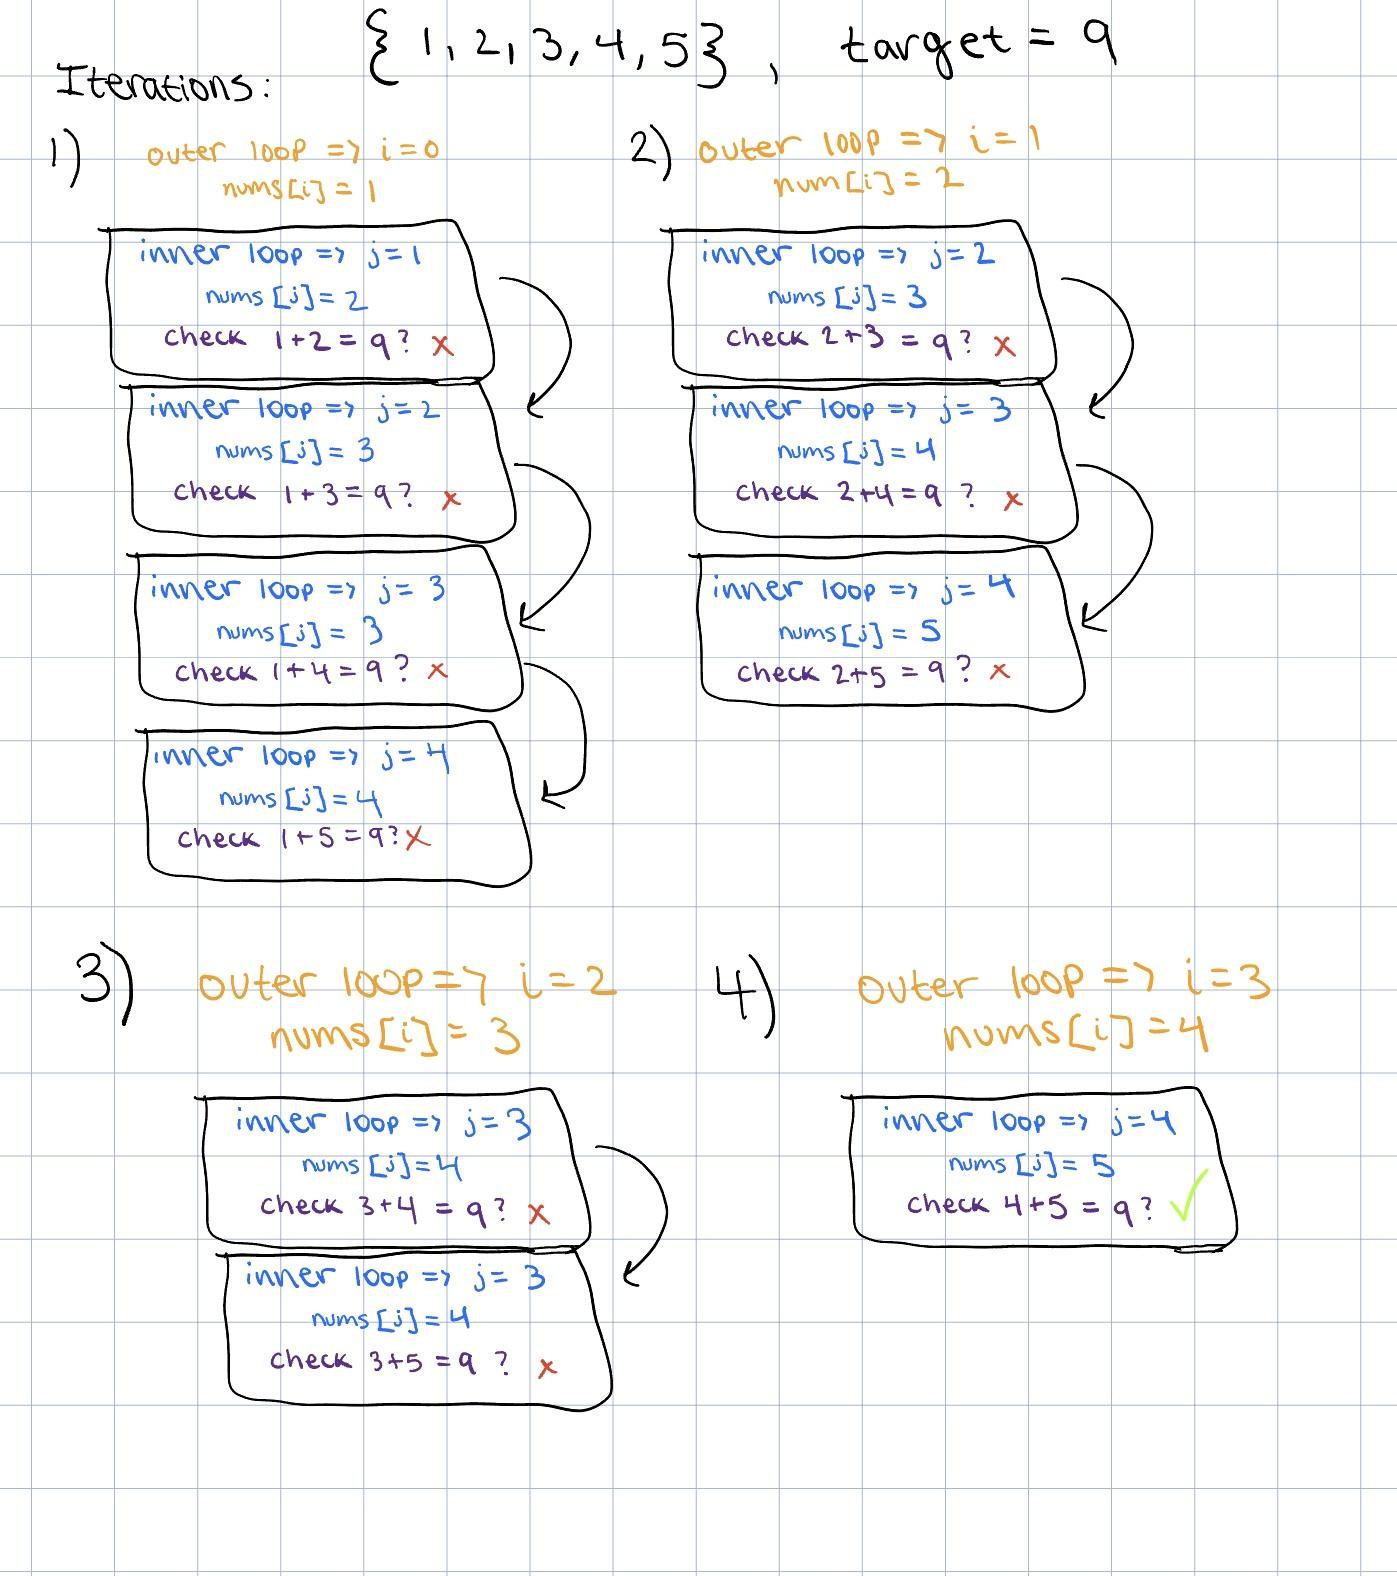 {1, 2, 3, 4, 5}, target = 9
Iterations:
1) outer loop => i=0
nums[i] = 1
inner loop => j=1
nums[j]=2
check 1+2=9? x
inner loop => j=2
nums[j]= 3
check 1+3=9? x
inner loop => j= 3
nums[j]= 3
check 1+4=9? x
inner loop => j=4
nums[j]=4
check 1+5=9? x
2) outer loop => i=1
num[i]= 2
inner loop => j=2
nums[j]= 3
check 2+3 = 9? x
inner loop => j= 3
nums[j]=4
check 2+4=9 ? x
inner loop => j=4
nums[j]= 5
check 2+5 = 9? x
3) outer loop => i=2
nums[i]= 3
inner loop => j=3
nums[j]=4
check 3+4 = 9? x
inner loop => j= 3
nums[j]=4
check 3+5=9 ? x
4) outer loop => i=3
nums[i]=4
inner loop => j=4
nums[j]= 5
check 4+5 = 9? ✓